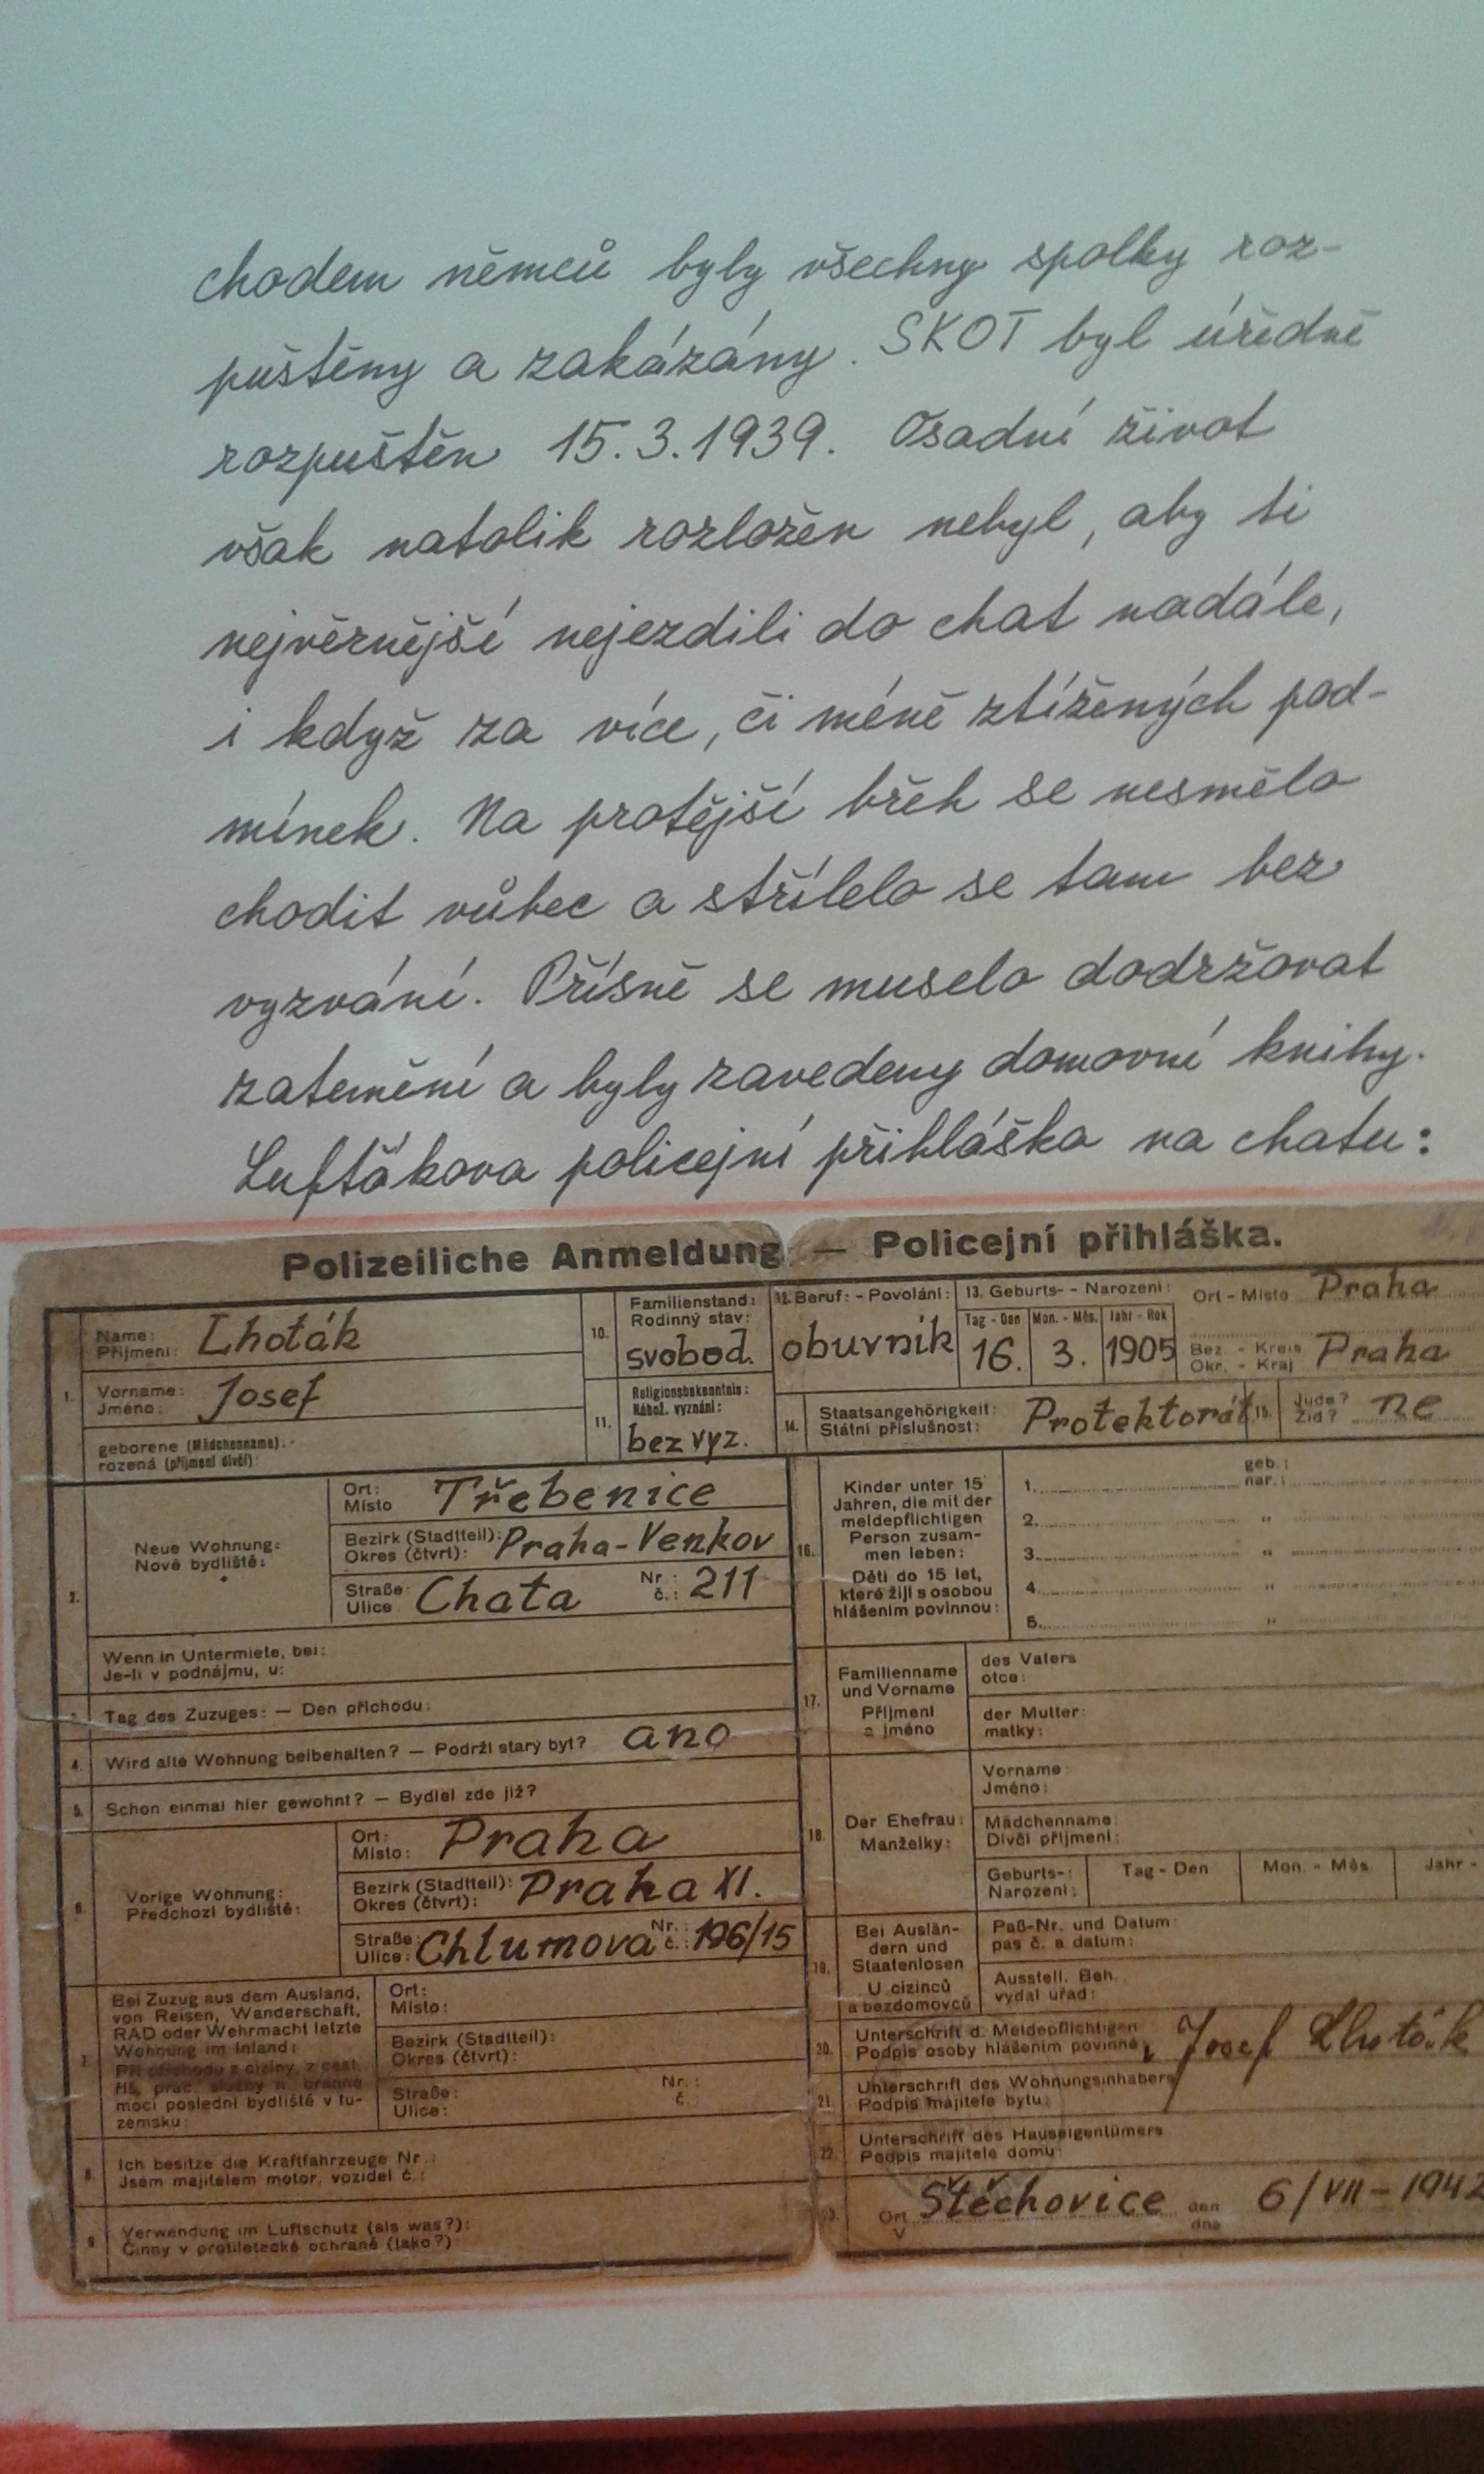 chodem němců byly všechny spolky roz-
puštěny a zakázány. SKOT byl úředně
rozpuštěn 15.3.1939. Osadní život
však natolik rozložen nebyl, aby ti
nejvěrnější nejezdili do chat nadále,
i když za více, či méně ztížených pod-
mínek. Na protější břeh se nesmělo
chodit vůbec a střílelo se tam bez
vyzvání. Přísně se muselo dodržovat
zatemění a byly zavedeny domovní knihy.
Luftákova policejní přihláška na chatu:
Polizeiliche Anmeldung — Policejní přihláška.
1.
Name:
Příjmení: Lhoták
Vorname:
Jméno: Josef
geborene (Mädchenname):
rozená (příjmení dívčí):
10. Familienstand:
Rodinný stav:
svobod.
11. Religionsbekenntnis:
Nábož. vyznání:
bez vyz.
12. Beruf: - Povolání:
obuvník
13. Geburts- - Narození:
Tag - Den Mon. - Měs. Jahr - Rok
16. 3. 1905
Ort - Místo Praha
Bez. - Kreis
Okr. - Kraj Praha
14. Staatsangehörigkeit:
Státní příslušnost: Protektorát
15. Jude?
Žid? ne
2. Neue Wohnung:
Nové bydliště:
Ort:
Místo Třebenice
Bezirk (Stadtteil):
Okres (čtvrt): Praha-Venkov
Straße:
Ulice Chata Nr.:
č.: 211
Wenn in Untermiete, bei:
Je-li v podnájmu, u:
3. Tag des Zuzuges: — Den příchodu:
4. Wird alte Wohnung beibehalten? — Podrží starý byt? ano
5. Schon einmal hier gewohnt? — Bydlel zde již?
6. Vorige Wohnung:
Předchozí bydliště:
Ort:
Místo: Praha
Bezirk (Stadtteil):
Okres (čtvrt): Praha XI.
Straße:
Ulice: Chlumova Nr.:
č.: 196/15
7. Bei Zuzug aus dem Ausland,
von Reisen, Wanderschaft,
RAD oder Wehrmacht letzte
Wohnung im Inland:
Při příchodu z ciziny, z cest,
říš. prac. služby a branné
moci poslední bydliště v tu-
zemsku:
Ort:
Místo:
Bezirk (Stadtteil):
Okres (čtvrt):
Straße:
Ulice:
Nr.:
č.
8. Ich besitze die Kraftfahrzeuge Nr.:
Jsem majitelem motor. vozidel č.:
9. Verwendung im Luftschutz (als was?):
Činný v protiletecké ochraně (jako?)
16. Kinder unter 15
Jahren, die mit der
meldepflichtigen
Person zusam-
men leben:
Děti do 15 let,
které žijí s osobou
hlášením povinnou:
1. geb.:
nar.:
2. "
3. "
4. "
5. "
17. Familienname
und Vorname
Příjmení
a jméno
des Vaters
otce:
der Mutter:
matky:
18. Der Ehefrau:
Manželky:
Vorname
Jméno:
Mädchenname:
Dívčí příjmení:
Geburts-:
Narození:
Tag - Den Mon. - Měs. Jahr -
19. Bei Auslän-
dern und
Staatenlosen
U cizinců
a bezdomovců
Paß-Nr. und Datum:
pas č. a datum:
Ausstell. Beh.
vydal úřad:
20. Unterschrift d. Meldepflichtigen
Podpis osoby hlášením povinné Josef Lhoták
21. Unterschrift des Wohnungsinhabers
Podpis majitele bytu:
22. Unterschrift des Hauseigentümers
Podpis majitele domu:
23. Ort
V Štěchovice den
dne 6/VII-1942